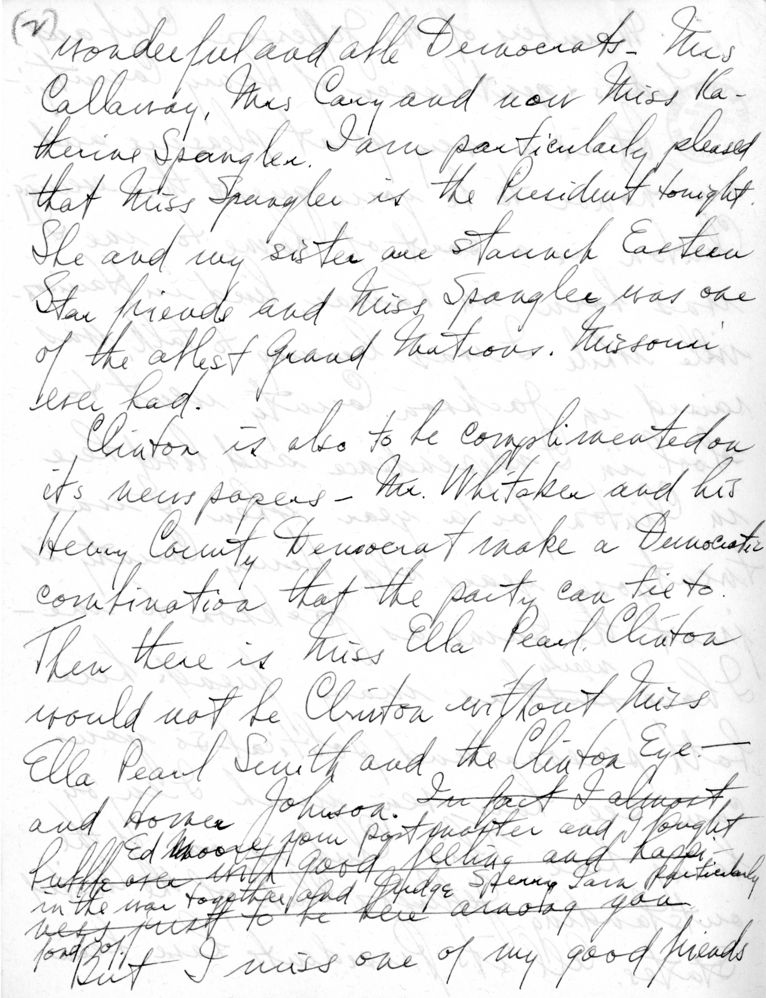 (2)
wonderful and able Democrats - Mrs
Callaway, Mrs Cary and now Miss Ka-
therine Spangler. I am particularly pleased
that Miss Spangler is the President tonight.
She and my sister are staunch Eastern
Star friends and Miss Spangler was one
of the ablest Grand Matrons. Missouri
ever had.
Clinton is also to be complimented on
its newspapers - Mr. Whitaker and his
Henry County Democrat make a Democratic
combination that the party can tie to.
Then there is Miss Ella Pearl. Clinton
would not be Clinton without Miss
Ella Pearl Smith and the Clinton Eye. —
and Homer Johnson. In fact I almost
Ed Moore your postmaster and I fought
bubble over with good feeling and happi-
in the war together and Judge Sperry I am particularly
ness just to be here among you
fond of.
But I miss one of my good friends